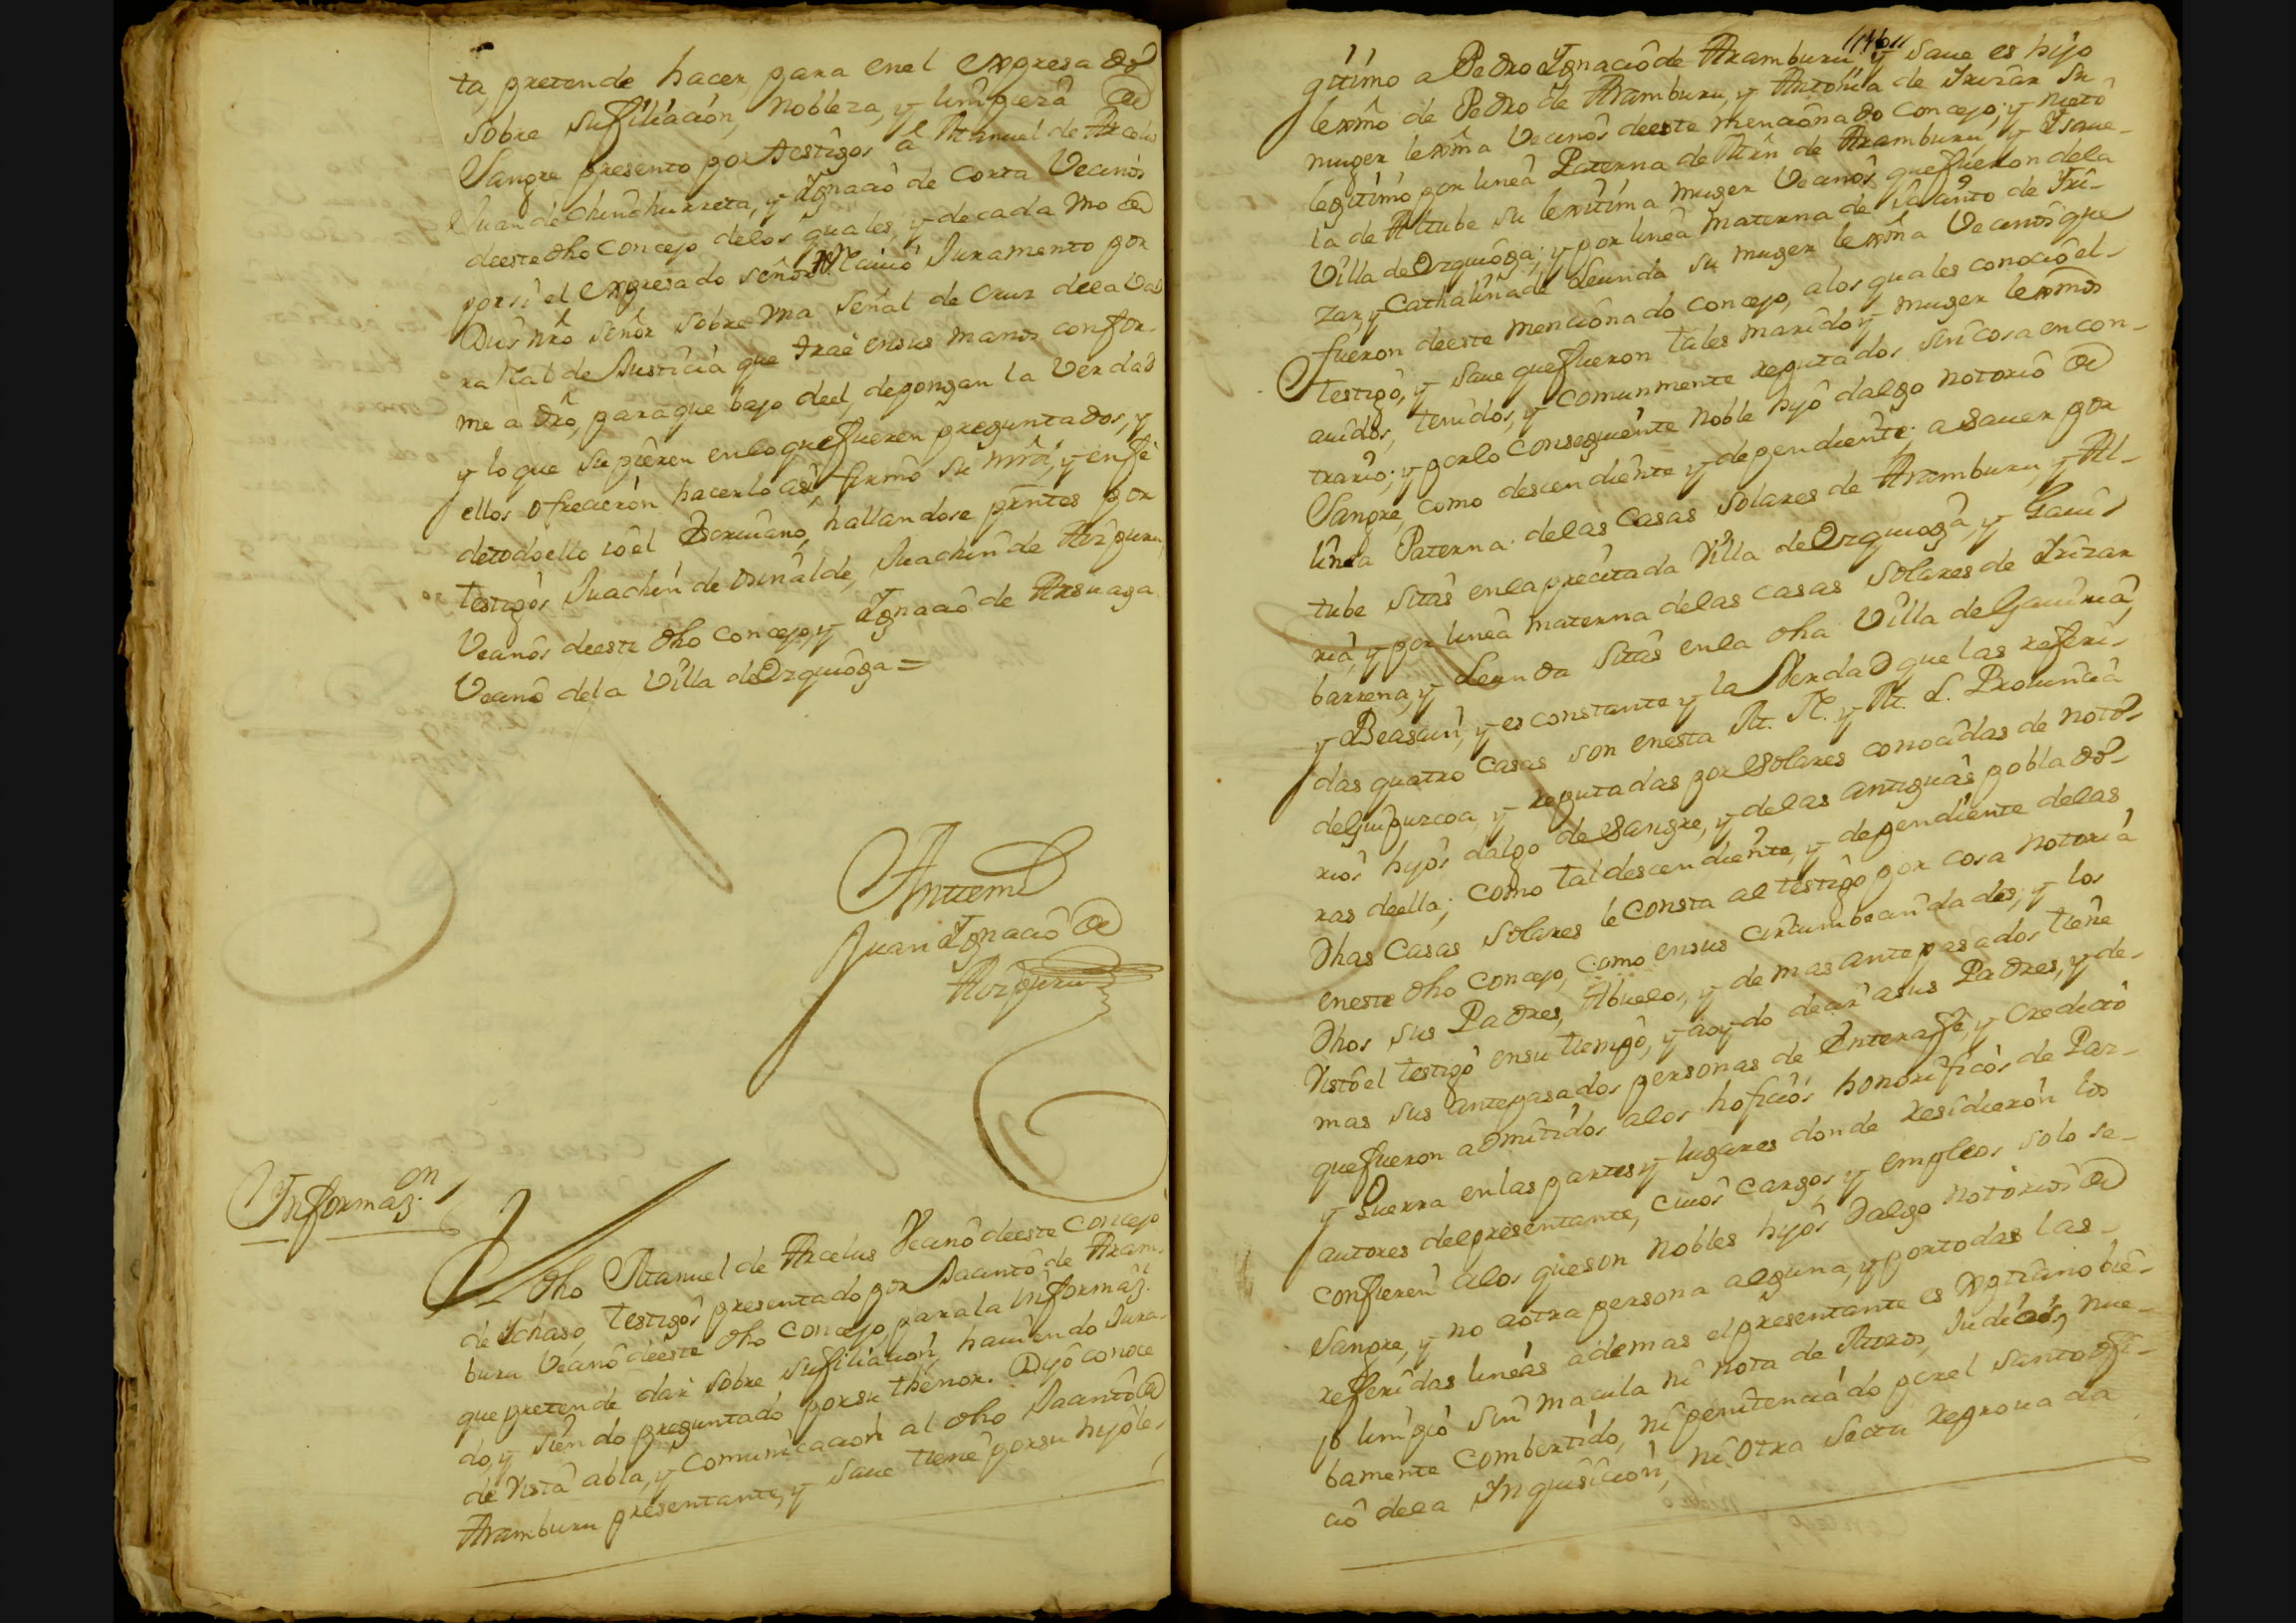 ta, pretende hacer, para en el expresado
sobre su filiación, nobleza, y limpieza de
Sangre presento por testigos â Manuel de Arcelus
Juan de Chinchurreta, y Ygnacio de Corta Vecinos
de este dho Concejo delos quales, y de cada uno de
por si el expresado señor Alcalde Reciuió Juramento por
Dios nrô señor sobre una señal de Cruz dela Va
ra Rl de Justicia que traê en sus manos confor-
me a drô, para que bajo deel, depongan la Verdad
y lo que supieren en lo que fueren preguntados, y
ellos ofrecieron hacerlo asi, firmô su mrd, y en fê
de todo ello io êl Escriuano, hallandose press. por
testigos Juachin de Osinalde, Juachin de Aizpuru,
Vecinôs de este dho Concejo, y Ygnacio de Arsuaga
Vecinô dela Villa de Ezquioga =
Antemi
Juan Ygnacio de
Aizpuru
Informaz.on
Dho Manuel de Arcelus Vecinô de este Concejo
de Ychaso, testigo presentado por Jacinto de Aram-
buru Vecinô de este dho Concejo, para la informaz.
que pretende dar sobre su filiacion, hauiendo Jura-
do, y siendo preguntado por su thenor. Dijô conoce
de Vista abla, y Comunicacion al dho Jacinto de
Aramburu presentante, y saue tiene por su hijo le-
146
gitimo a Pedro Ygnacio de Aramburu y saue es hijo
lexmô de Pedro de Aramburu, y Antonia de Irizar su
muger lexma Vecinôs de este mencionado Concejo; y nieto
legitimo por linea Paterna de Mrn de Aramburu y Isaue-
la de Altube su lexitima muger Vecinôs que fueron dela
Villa de Ezquioga; y por linea materna de Jacinto de Iri-
zar, y Cathalina de Leunda su muger lexma Vecinos que
fueron de este mencionado Concejo, alos quales conociô el
testigo, y saue que fueron tales marido y muger lexmos
auidos, tenidos, y comunmente reputados sin cosa en con-
trario; y por lo consequiente noble hijo dalgo notorio de
Sangre, como descendiente y dependiente; a sauer por
linea Paterna delas Casas Solares de Aramburu, y Al-
tube sitas en la precitada Villa de Ezquioga, y Gaui-
ria, y por linea materna delas casas Solares de Irizar
barrena, y Leunda sitas en la dha Villa de Gauiria,
y Beasain, y es constante y la Verdad que las referi-
das quatro Casas son en esta M. N. y M. L. Prouincia
de Guipuzcoa, y reputadas por solares conocidas de noto-
rios hijos dalgo de Sangre, y delas antiguas poblado-
ras de ella; Como tal descendiente, y dependiente delas
dhas Casas Solares le consta al testigo por cosa notoria
en este dho Concejo, como en sus circumbecindades; y los
dhos sus Padres, Abuelos, y demas antepasados tiene
Visto el testigo en su tiempo, y a oydo decir asus Padres, y de-
mas sus antepasados personas de Entera fê, y Credito
que fueron admitidos alos hoficios honorificos de Paz
y Guerra en las partes y lugares donde residieron los
autores del presentante, cuios cargos y empleos solo se
confieren alos que son nobles hijos dalgo notorios de
Sangre, y no aotra persona alguna, y por todas las
refferidas lineas ademas el presentante es Xptiano bie-
jo limpio sin macula ni nota de Moros, Judios, nue-
bamente combertido, ni penitenciado por el Santo ofi-
cio dela Inquisicion, ni otra secta reprouada